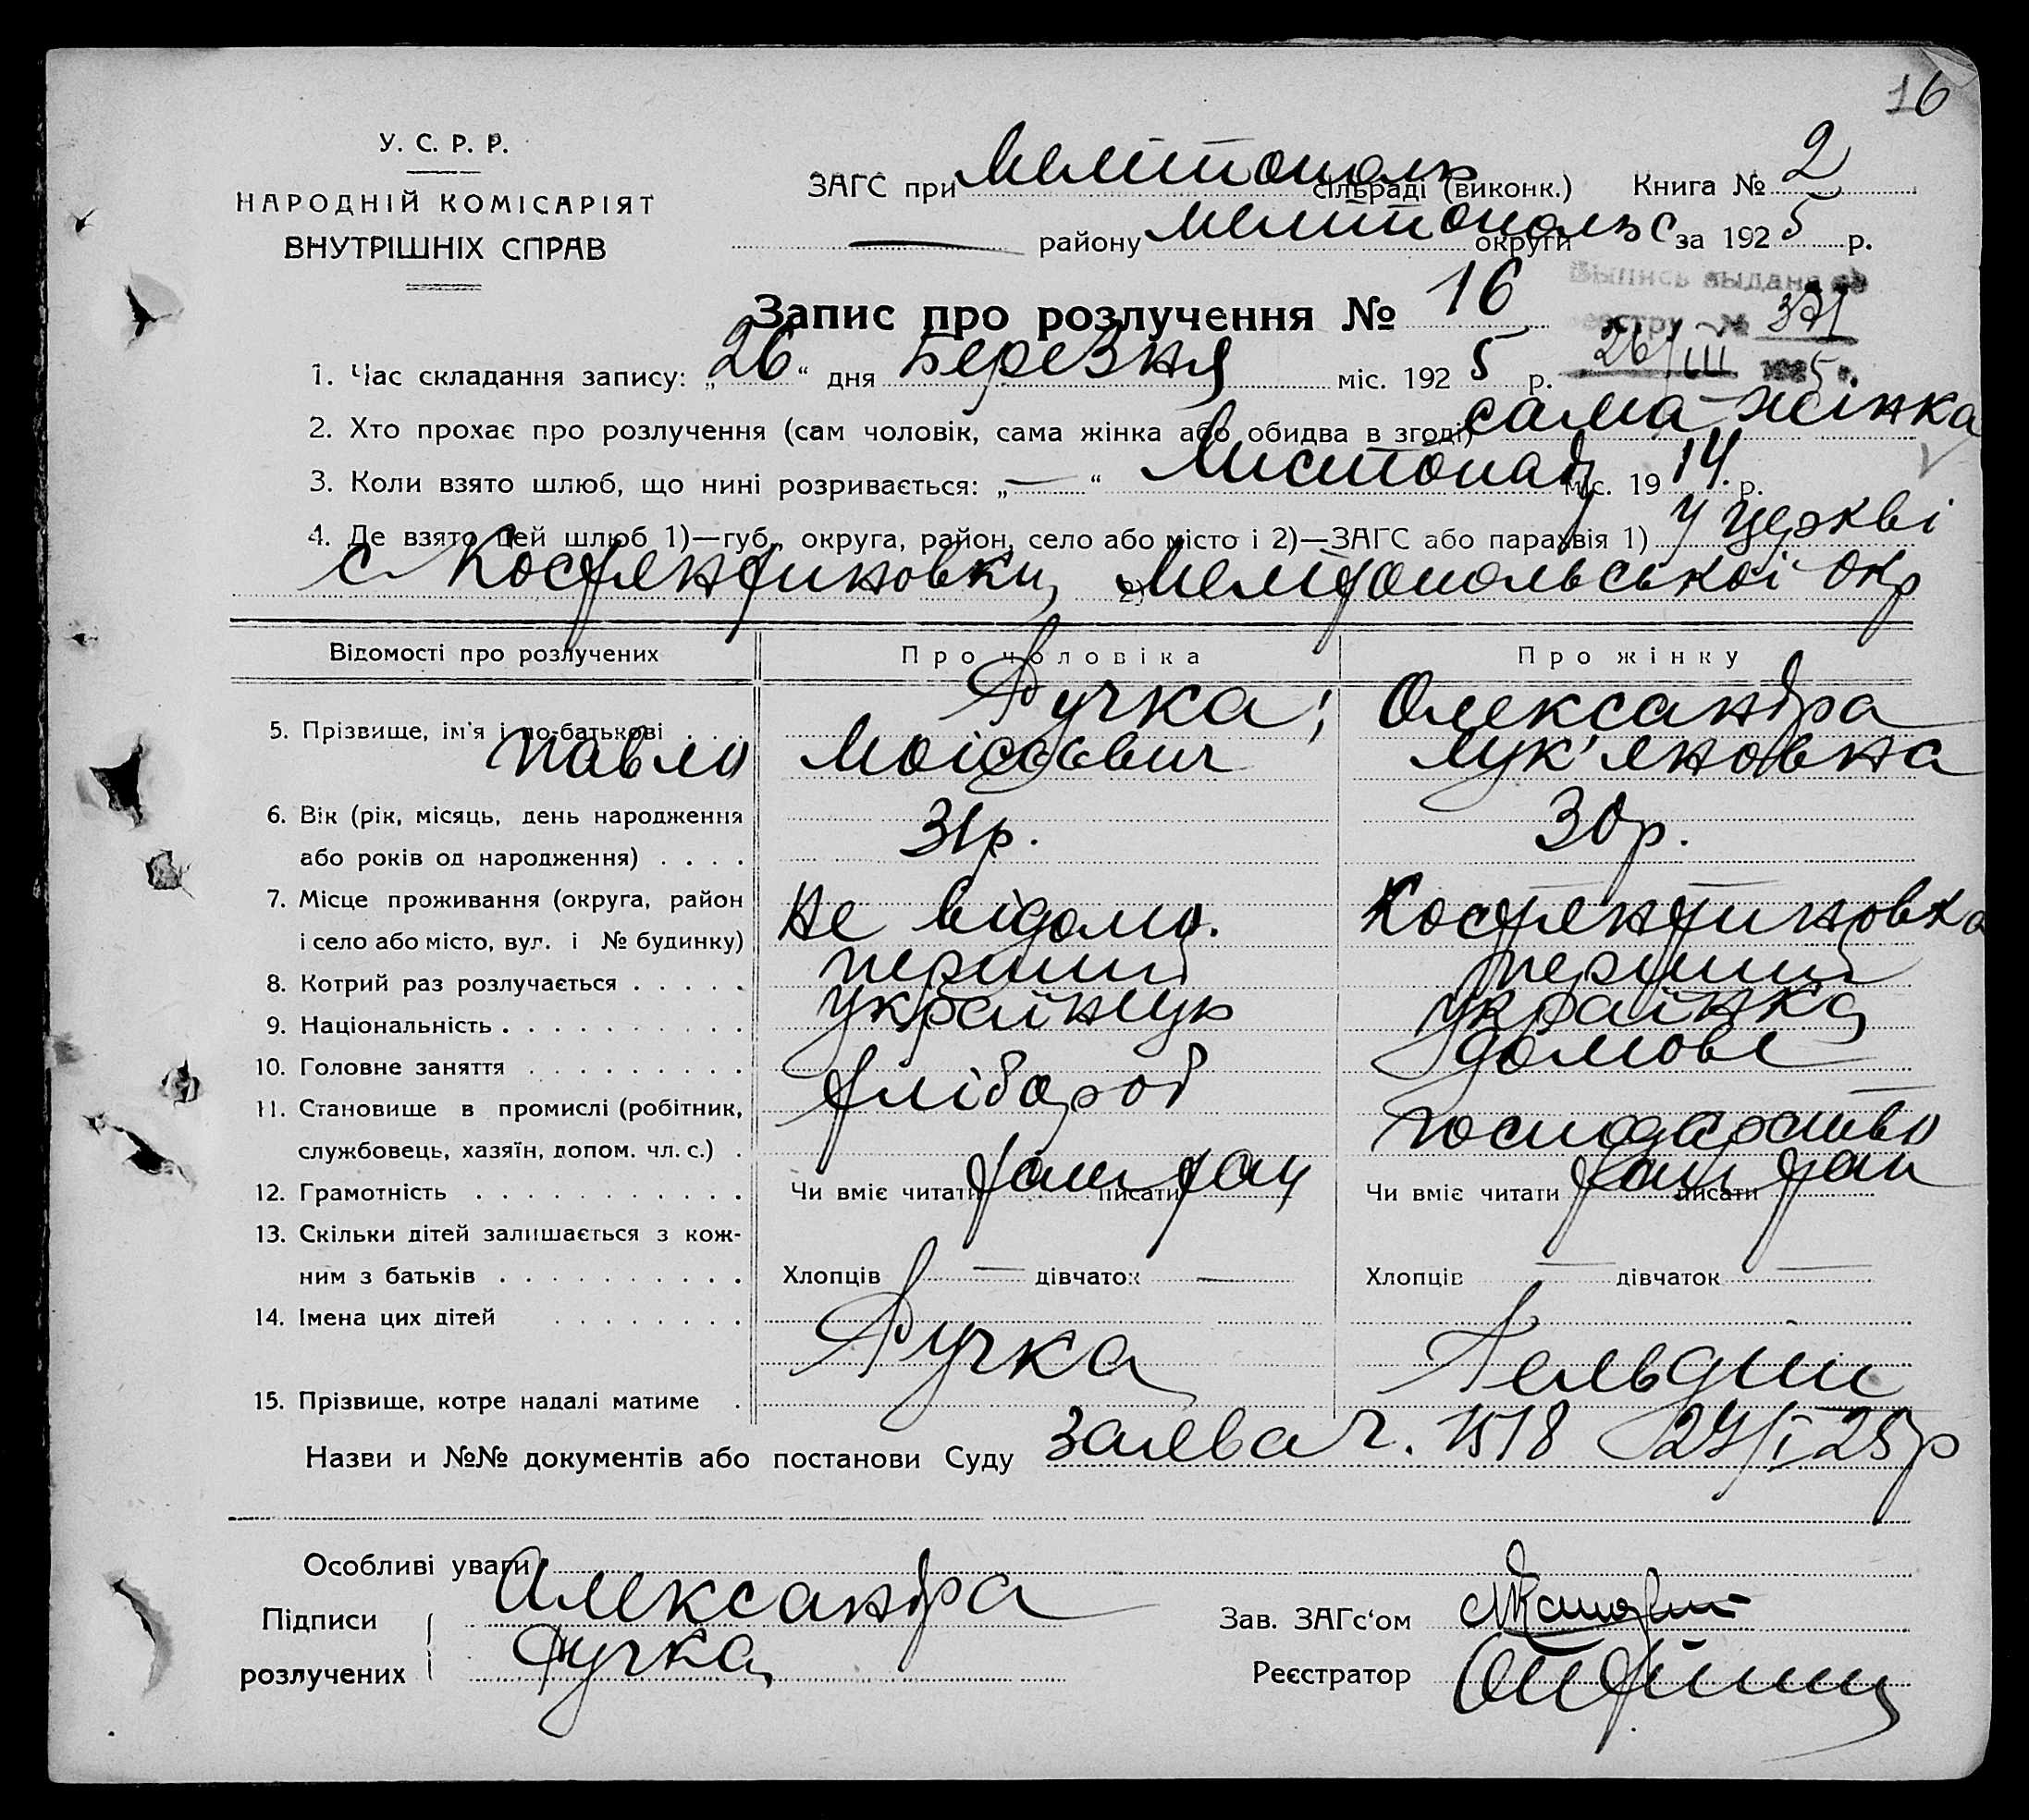 16
У. С. Р. Р.
НАРОДНІЙ КОМІСАРІЯТ
ВНУТРІШНІХ СПРАВ
ЗАГС при Мелітополь сільраді (виконк.) Книга № 2
— району Мелітопольс округи за 1925 р.
Запис про розлучення № 16
Выпись выдана
реестру № 321
26/III 1925 г.
1. Час складання запису: „26“ дня Березня міс. 1925 р.
2. Хто прохає про розлучення (сам чоловік, сама жінка або обидва в згоді) сама жінка
3. Коли взято шлюб, що нині розривається: „—“ Листопад міс. 1914 р.
4. Де взято цей шлюб 1)—губ., округа, район, село або місто і 2)—ЗАГС або парахвія 1) у церкві
с Костянтиновки, 2) Мелітопольської окр
Відомості про розлучених Про чоловіка Про жінку
5. Прізвище, ім'я і по-батькові . . . Ручка; Олександра
Павло Моісеєвич Лук'яновна
6. Вік (рік, місяць, день народження
або років од народження) . . . . 31р. 30р.
7. Місце проживання (округа, район
і село або місто, вул. і № будинку) Не відомо. Костянтиновка
8. Котрий раз розлучається . . . . . перший перший
9. Національність . . . . . . . . . . українець українка
10. Головне заняття . . . . . . . . . хлібороб домове
11. Становище в промислі (робітник,
службовець, хазяїн, допом. чл. с.) . господарство
12. Грамотність . . . . . . . . . . . . Чи вміє читати так писати так Чи вміє читати так писати так
13. Скільки дітей залишається з кож-
ним з батьків . . . . . . . . . . Хлопців — дівчаток — Хлопців — дівчаток —
14. Імена цих дітей . . . . . . . .
15. Прізвище, котре надалі матиме . Ручка
Назви и №№ документів або постанови Суду Заява ч. 1518 27/I 25р
Особливі уваги
Підписи розлучених Александра
Ручка
Зав. ЗАГс‘ом
Реєстратор